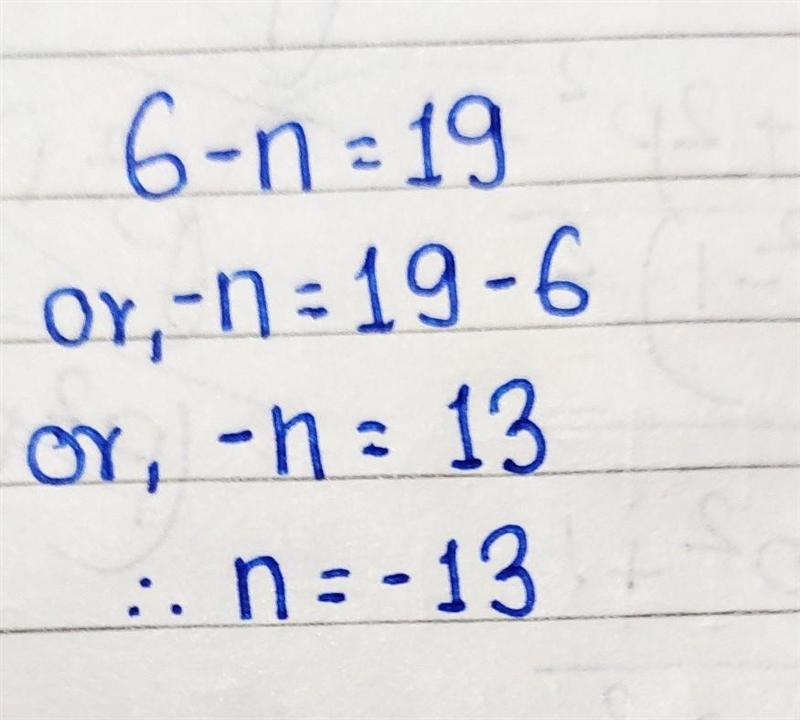 6-n=19
or,-n=19-6
or, -n= 13
∴ n=-13